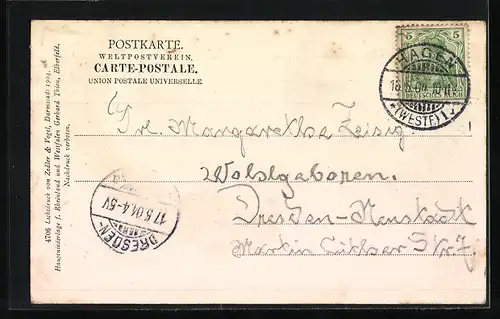 POSTKARTE.
WELTPOSTVEREIN.
CARTE-POSTALE.
UNION POSTALE UNIVERSELLE.
5 5
DEUTSCHES REICH
HAGEN
(WESTF)1
Frl. Margarethe Zeisig.
Wolslgaboren.
Dresden-Neustadt
Martin Luther Str. 7.
17.5.04.4-5V
DRESDEN-
4706 Lichtdruck von Zedler & Vogel, Darmstadt 1904.
Hauptniederlage f. Rheinland und Westfalen Gerhard Thien, Elberfeld.
Nachdruck verboten.